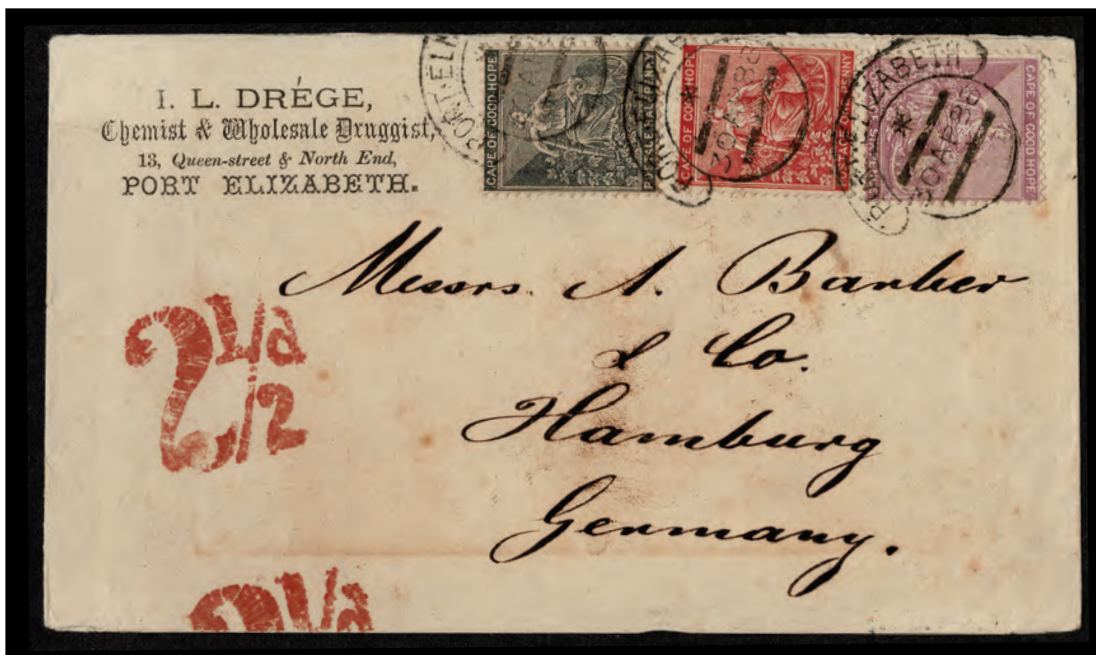 I. L. DRÉGE,
Chemist & Wholesale Druggist,
13, Queen-street & North End,
PORT ELIZABETH.
CAPE OF GOOD HOPE
POSTAGE HALFPENNY
CAPE OF GOOD HOPE
POSTAGE ONE PENNY
CAPE OF GOOD HOPE
PORT ELIZABETH
30 AP 86
2 1/2 d
Messrs. A.
& Co.
Hamburg
Germany.
2 1/d